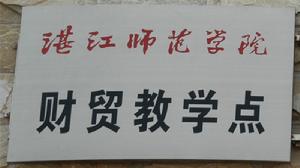 湛江师范学院
财贸教学点